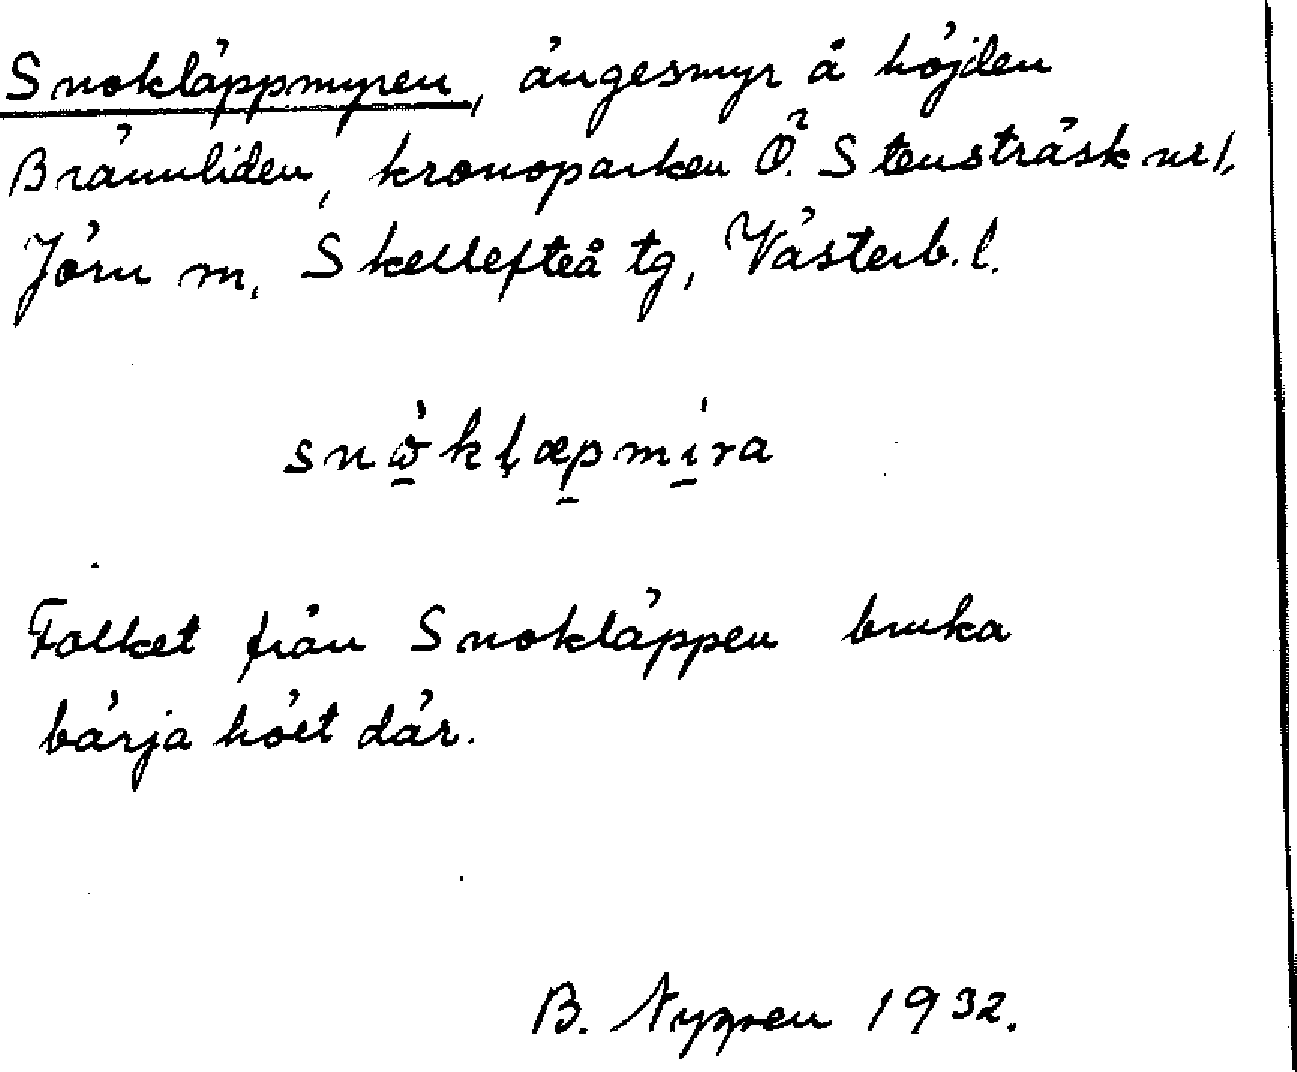 Snokläppmyren, ängesmyr å höjden
Brännliden, kronoparken Ö. Stensträsk nr 1,
Jörn sn, Skellefteå tg, Västerb. l.
snὼ̠kḷæp̠mi̠̍ra
Folket från Snokläppen bruka
bärja höet där.
B. Nygren 1932.